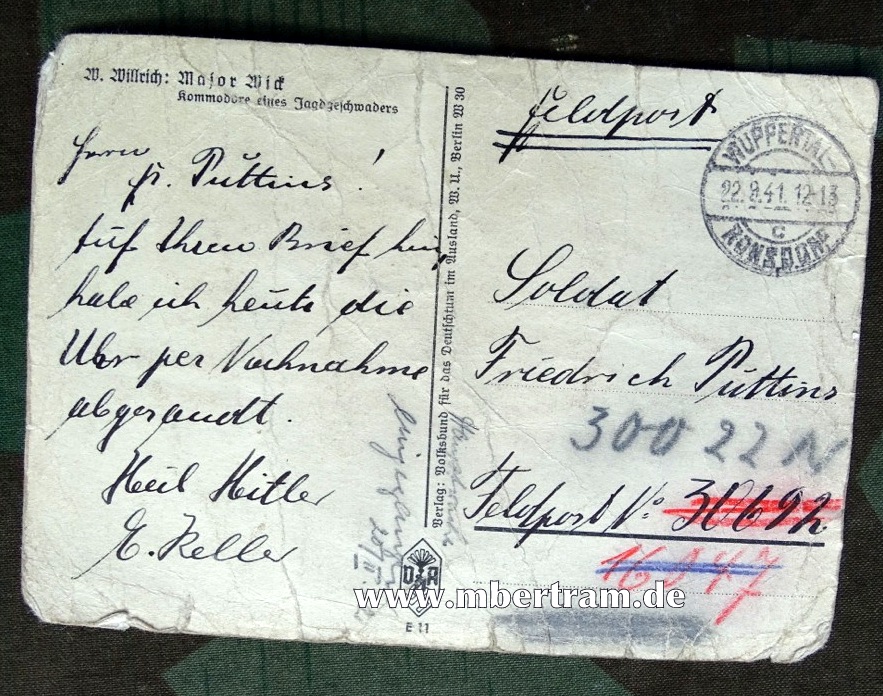 W. Willrich: Major Wick
Kommodore eines Jagdgeschwaders
Herrn
Fr. Püttins!
Auf Ihren Brief hin,
habe ich heute die
Uhr per Nachnahme
abgesandt.
Heil Hitler
E. Keller
Verlag: Volksbund für das Deutschtum im Ausland, W. U., Berlin W 30
E 11
Feldpost
WUPPERTAL-
22.9.41.12-13
c
RONSDORF
Soldat
Friedrich Püttins
300 22 N
Feldpost No 30692
16047
www.mbertram.de